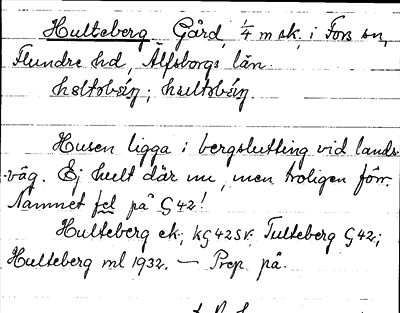 Hulteberg Gård, 1/4 m sk, i Fors sn,
Flundre hd, Älfsborgs län.
Husen ligga i bergslutting vid lands-
väg. Ej hult där nu, men troligen förr.
Namnet fel på G42!
Hulteberg ek; kG42SV. Tulteberg G42;
Hulteberg ml 1932. — Prep på.